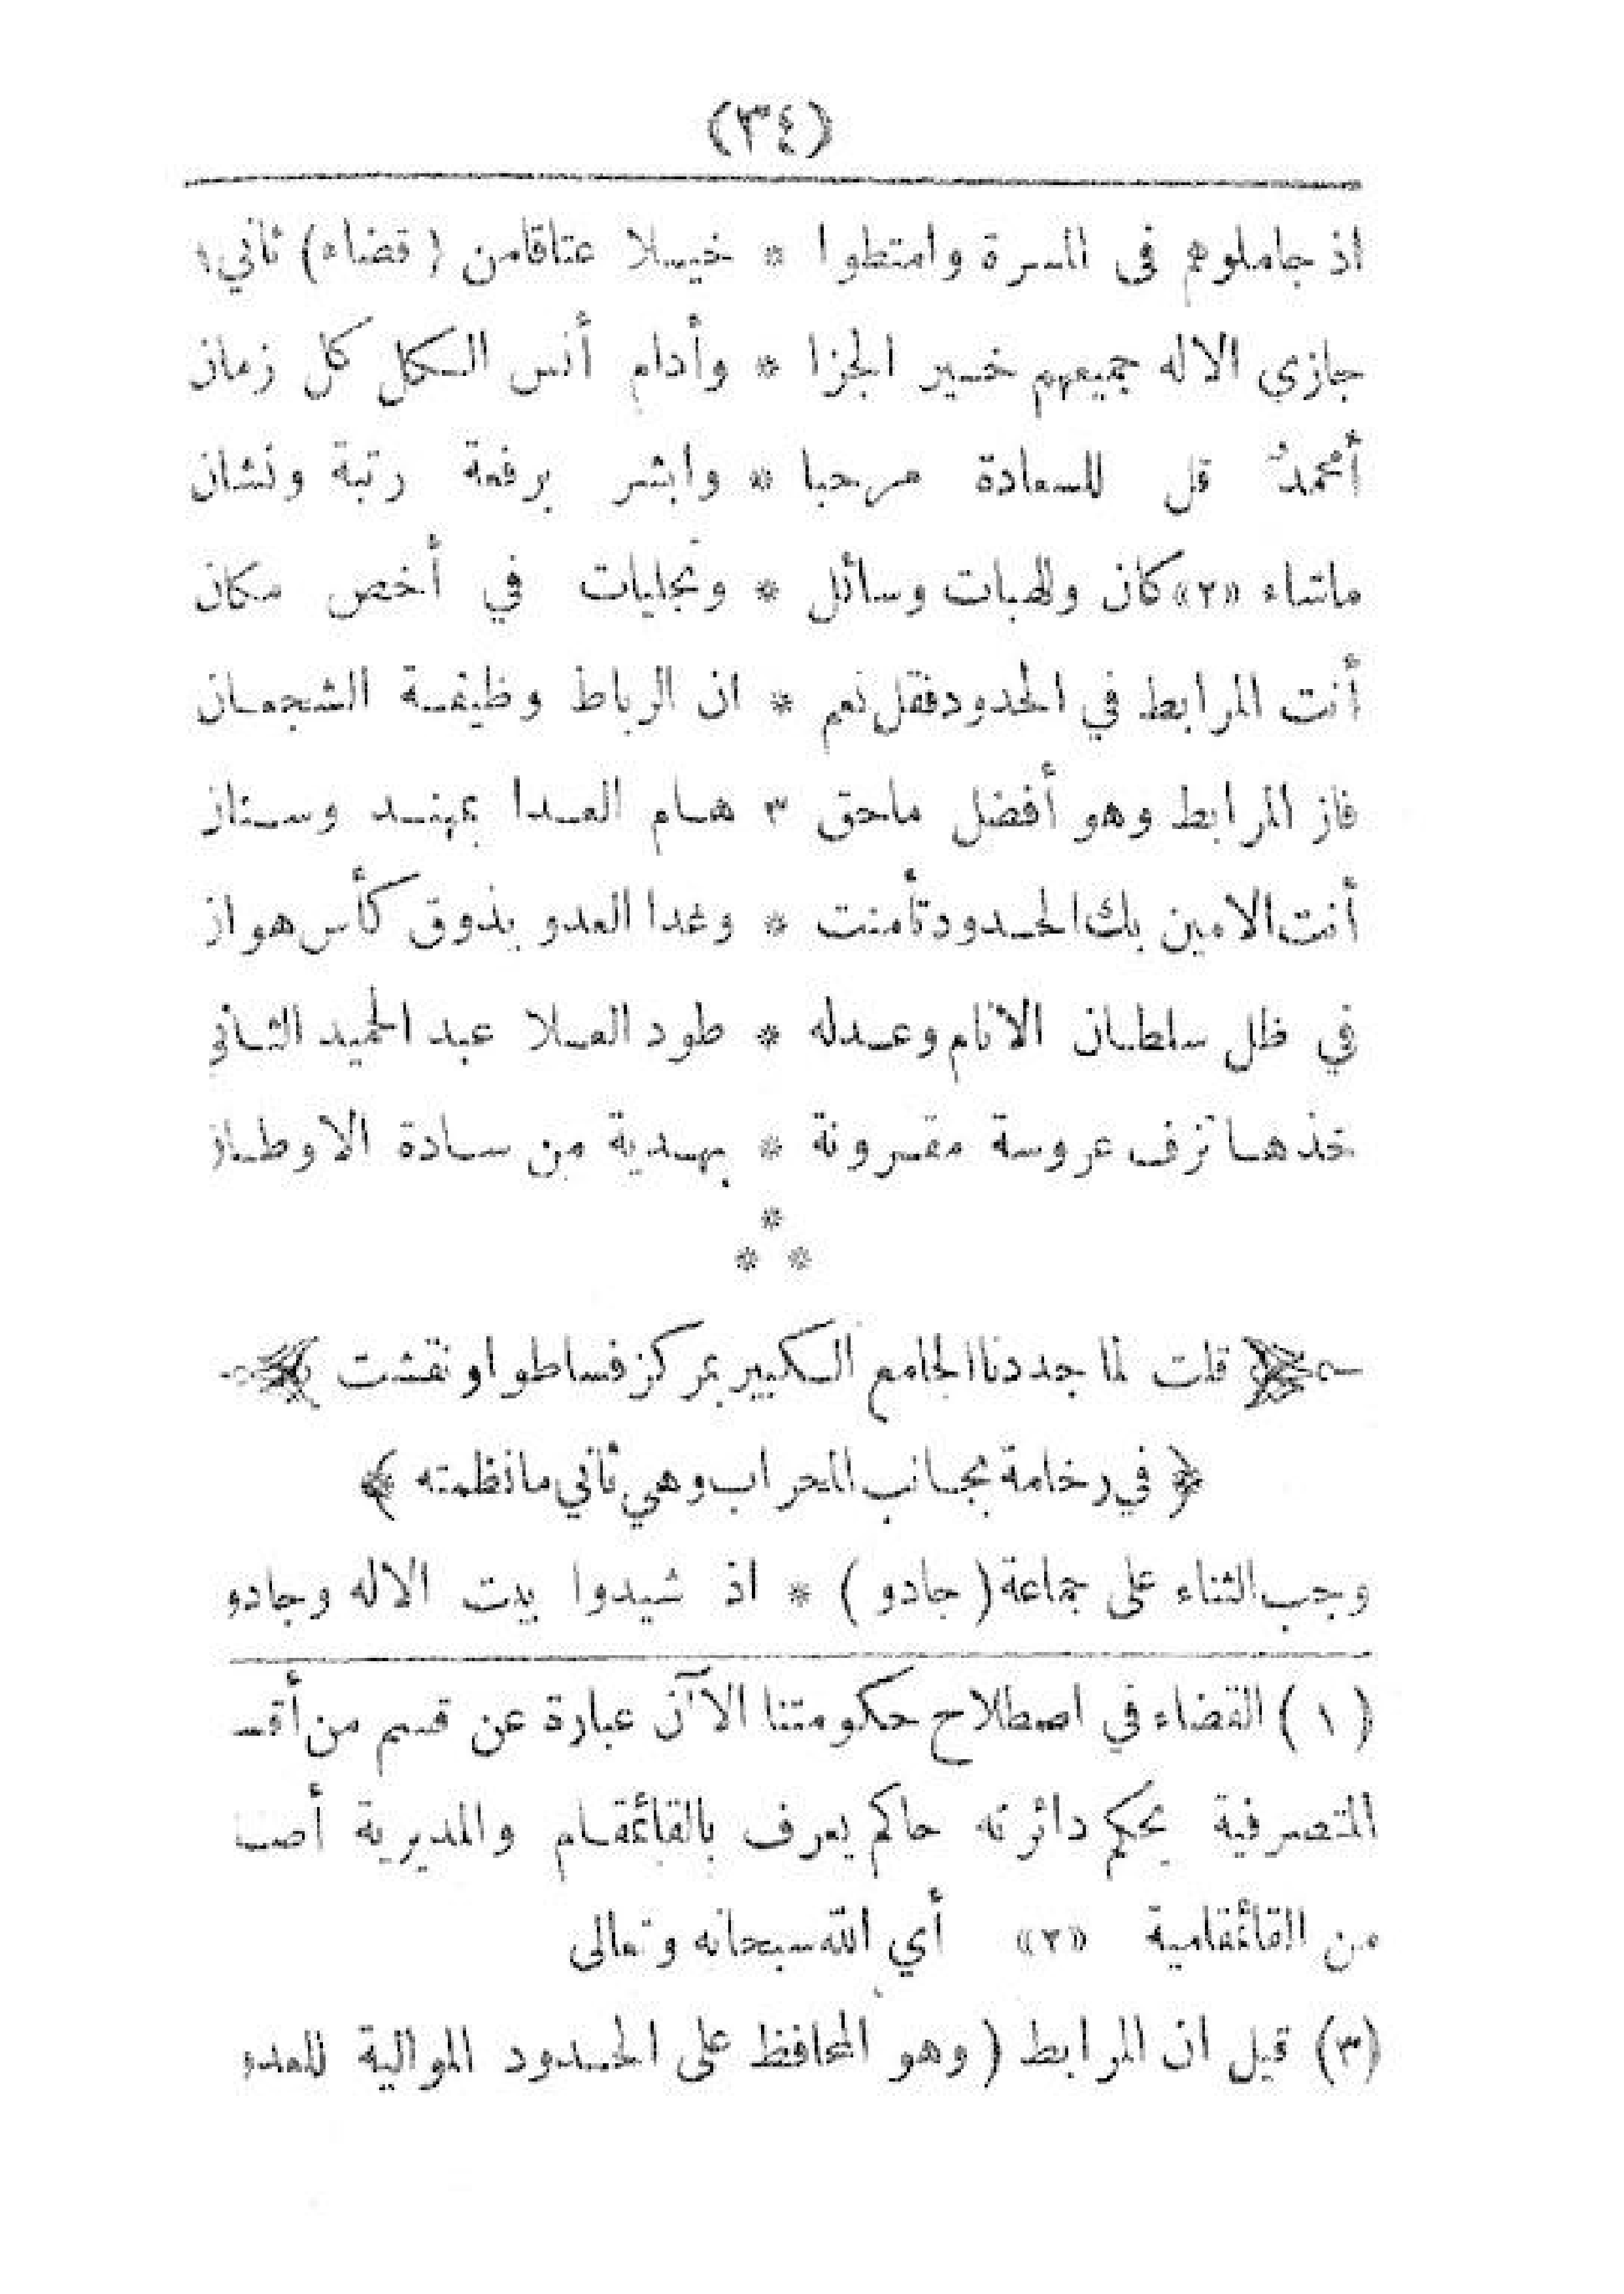 (٣٤)
اذ جاملوهم فى المسرة وامتطوا * خيـلا عتاقا من (قضاء) ثاني
جازي الاله جميعهم خـير الجزا * وأدام أنس الـكل كل زمان
أمحمدُ قل للسعادة مرحبا * وابشر برفعة رتبة ونشان
ماشاء «٢» كان وللهبات وسائل * وتجليات في أخص مكان
أنت المرابط في الحدود فقل نعم * ان الرباط وظيفـة الشجعـان
فاز المرابط وهو أفضل ماحق ٣ هـام العـدا بمهنـد وسـنان
أنت الامين بك الحـدود تأمنت * وغدا العدو يذوق كأس هوان
في ظل سلطـان الانام وعـدله * طود العـلا عبد الحميد الثـاني
خذهـا تزف عروسة مقـرونة * بهـدية من سـادة الاوطـان
*
* *
قلت لما جددنا الجامع الـكبير بمركز فساطو او نقشت
﴿ في رخامة بجـانب المحراب وهي ثاني مانظمته ﴾
وجب الثناء على جماعة ( جادو ) * اذ شيدوا بيت الاله وجادو
( ١ ) القضاء في اصطلاح حكومتنا الآن عبارة عن قسم من أقسـ
المتصرفية يحكم دائرته حاكم يعرف بالقائمقـام والمديرية أصـ
من القائمقامية «٢» أي الله سبحانه وتعالى
(٣) قيل ان المرابط ( وهو المحافظ على الحـدود الموالية للعدو